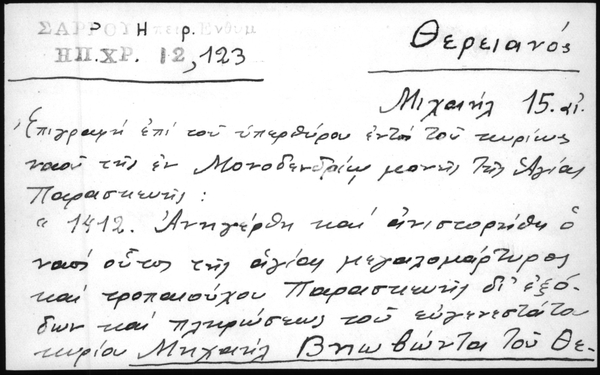 ΣΑΡΡΟΥ Ηπειρ. Ενθυμ
Ρ Η ρ.
ΗΠ.ΧΡ. 12, 123
Θερειανός
Μιχαήλ 15. αἰ.
Ἐπιγραφή ἐπί τοῦ ὑπερθύρου ἐντός τοῦ κυρίως
ναοῦ τῆς ἐν Μονοδενδρίῳ μονῆς τῆς Ἁγίας
Παρασκευῆς :
" 1412. Ἀνηγέρθη καί ἀνιστορήθη ὁ
ναός οὗτος τῆς ἁγίας μεγαλομάρτυρος
καί τροπαιούχου Παρασκευῆς δι' ἐξό-
δων καί πληρώσεως τοῦ εὐγενεστάτου
κυρίου Μηχαήλ Βηωβώντα τοῦ Θε-